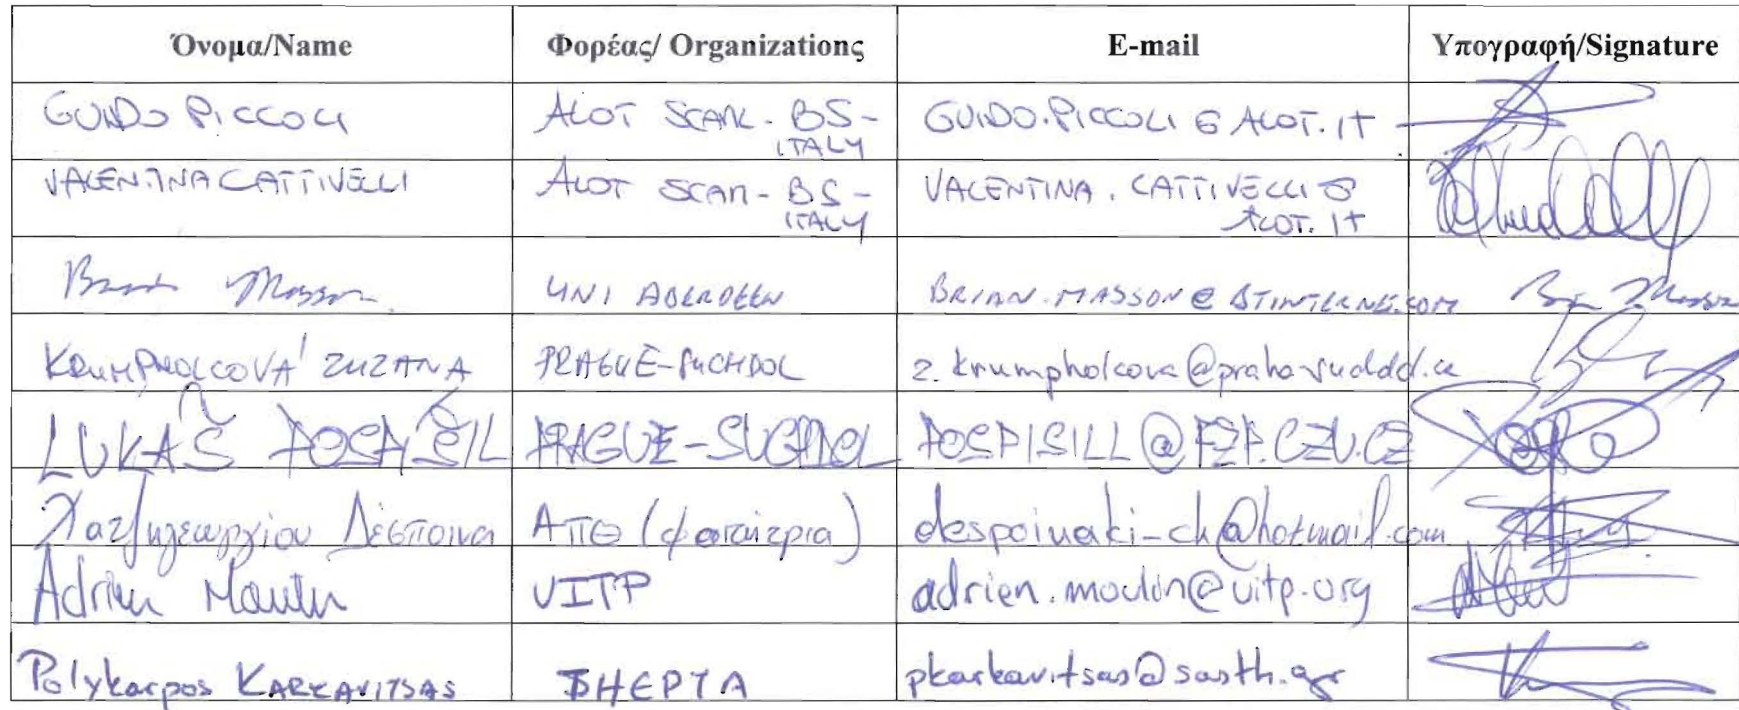 Όνομα/Name Φορέας/ Organizations E-mail Υπογραφή/Signature
GUIDO PICCOLI ALOT SCARL - BS - GUIDO.PICCOLI @ ALOT.IT
ITALY
VALENTINA CATTIVELLI ALOT SCARL - BS - VALENTINA. CATTIVELLI @
ITALY ALOT. IT
Brian Masson UNI ABERDEEN BRIAN.MASSON@BTINTERNET.COM
KRUMPHOLCOVÁ ZUZANA PRAGUE-SUCHDOL z.krumpholcova@praha-suchdol.cz
LUKÁŠ POSPÍŠIL PRAGUE-SUCHDOL POSPISILL@FZP.CZU.CZ
Χατζηγεωργίου Δέσποινα ΑΠΘ (φοιτήτρια) despoinaki-ch@hotmail.com
Adrien Moulin UITP adrien.moulin@uitp.org
Polykarpos KARKAVITSAS THEPTA pkarkavitsas@sasth.gr